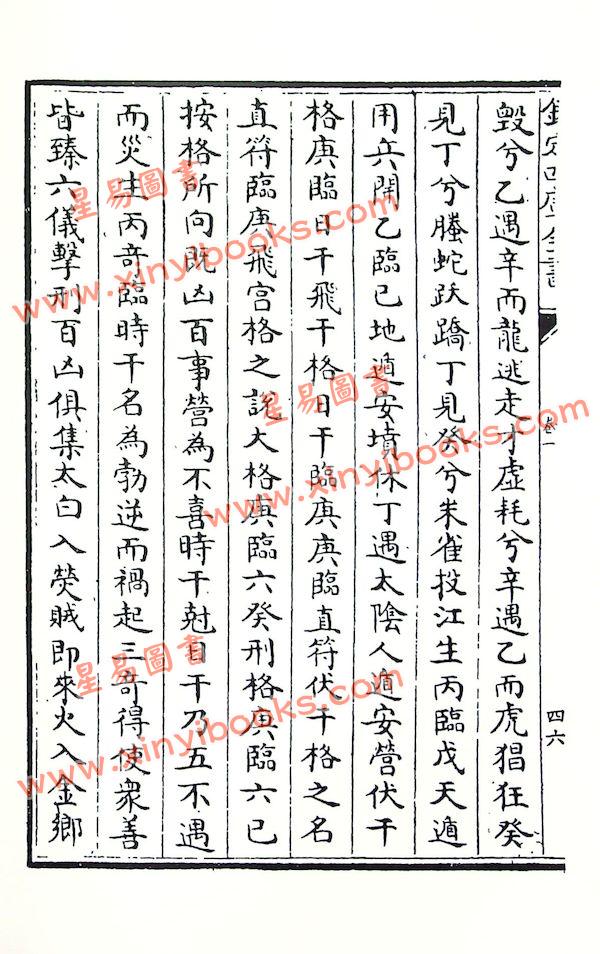 欽定四庫全書
卷一
四六
毀兮乙遇辛而龍逃走才虛耗兮辛遇乙而虎猖狂癸
見丁兮螣蛇跃蹻丁見癸兮朱雀投江生丙臨戊天遁
用兵開乙臨己地遁安墳休丁遇太陰人遁安營伏干
格庚臨日干飛干格日干臨庚庚臨直符伏干格之名
直符臨庚飛宮格之說大格庚臨六癸刑格庚臨六己
按格所向既凶百事營為不喜時干尅日干乃五不遇
而災生丙奇臨時干名為勃逆而禍起三奇得使衆善
皆臻六儀擊刑百凶俱集太白入熒賊即來火入金鄉
星易圖書
www.xinyibooks.com
星易圖書
www.xinyibooks.com
星易圖書
www.xinyibooks.com